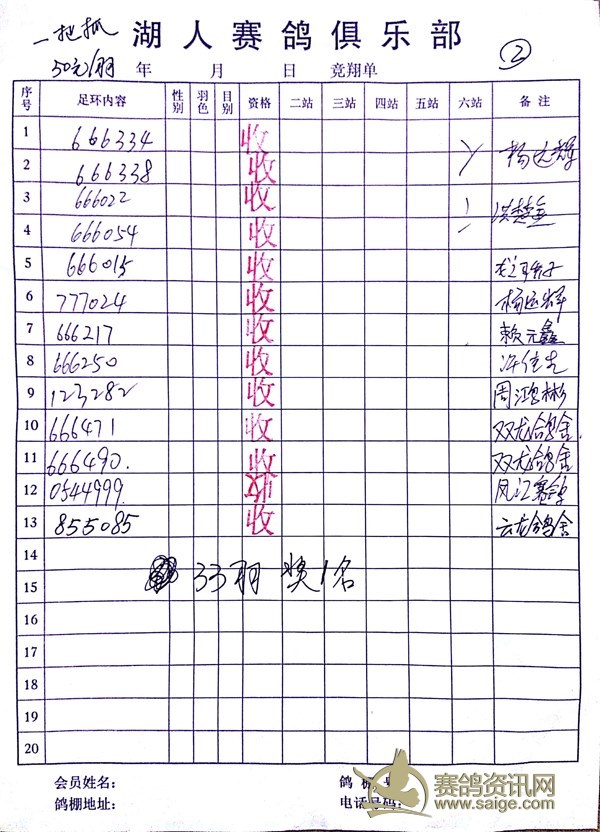 一把抓 湖人赛鸽俱乐部
50元/羽 年 月 日 竞翔单 ②
序号 足环内容 性别 羽色 目别 资格 二站 三站 四站 五站 六站 备注
1 666334 收
2 666338 收 杨运辉
3 666022 收
4 666054 收
5 666015 收
6 777024 收 杨运辉
7 666217 收 赖元鑫
8 666250 收
9 123282 收 周鸿彬
10 666471 收 双龙鸽舍.
11 666490. 收 双龙鸽舍
12 0544999. 凤江赛鸽
13 855085 收 云龙鸽舍
14
15 33羽 奖1名
16
17
18
19
20
会员姓名: 鸽棚
鸽棚地址: 电话号码:
赛鸽资讯网
www.saige.com